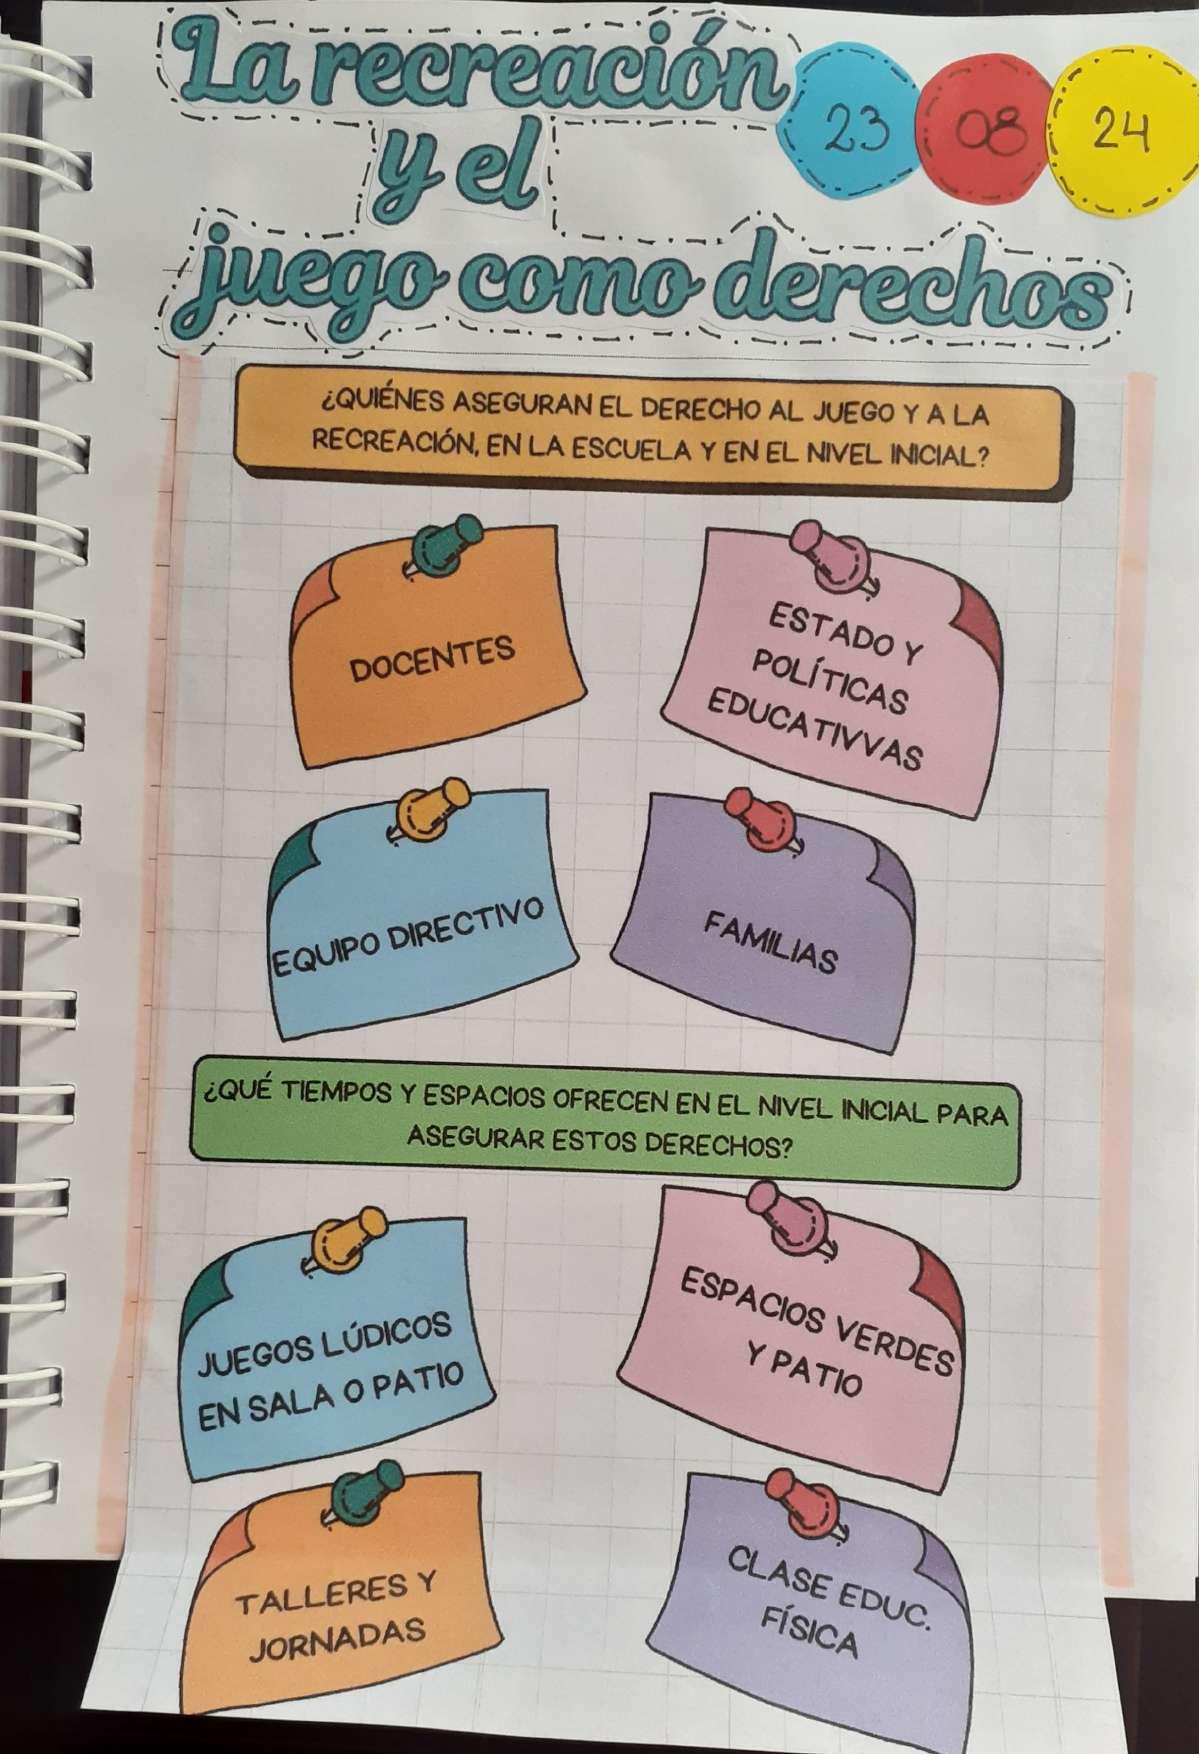 La recreación
23 08 24
y el
juego como derechos
¿QUIÉNES ASEGURAN EL DERECHO AL JUEGO Y A LA
RECREACIÓN, EN LA ESCUELA Y EN EL NIVEL INICIAL?
DOCENTES
ESTADO Y
POLÍTICAS
EDUCATIVVAS
EQUIPO DIRECTIVO
FAMILIAS
¿QUÉ TIEMPOS Y ESPACIOS OFRECEN EN EL NIVEL INICIAL PARA
ASEGURAR ESTOS DERECHOS?
JUEGOS LÚDICOS
EN SALA O PATIO
ESPACIOS VERDES
Y PATIO
TALLERES Y
JORNADAS
CLASE EDUC.
FÍSICA